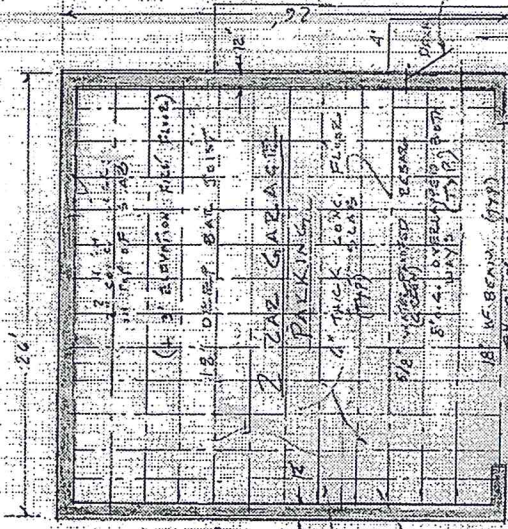 26'
26'
12'
4'
DOOR
CONC.
TOP OF SLAB
(+ 3" ELEVATION FIN. FLOOR)
18" DEEP BAR JOIST
2 CAR GARAGE
PARKING
6" THICK CONC. FLOOR
SLAB
(TYP)
5/8"
REBAR
8" O.C. OVERLAPPED BOTH
WAYS (TYP)
18" WF. BEAM (TYP)
12"